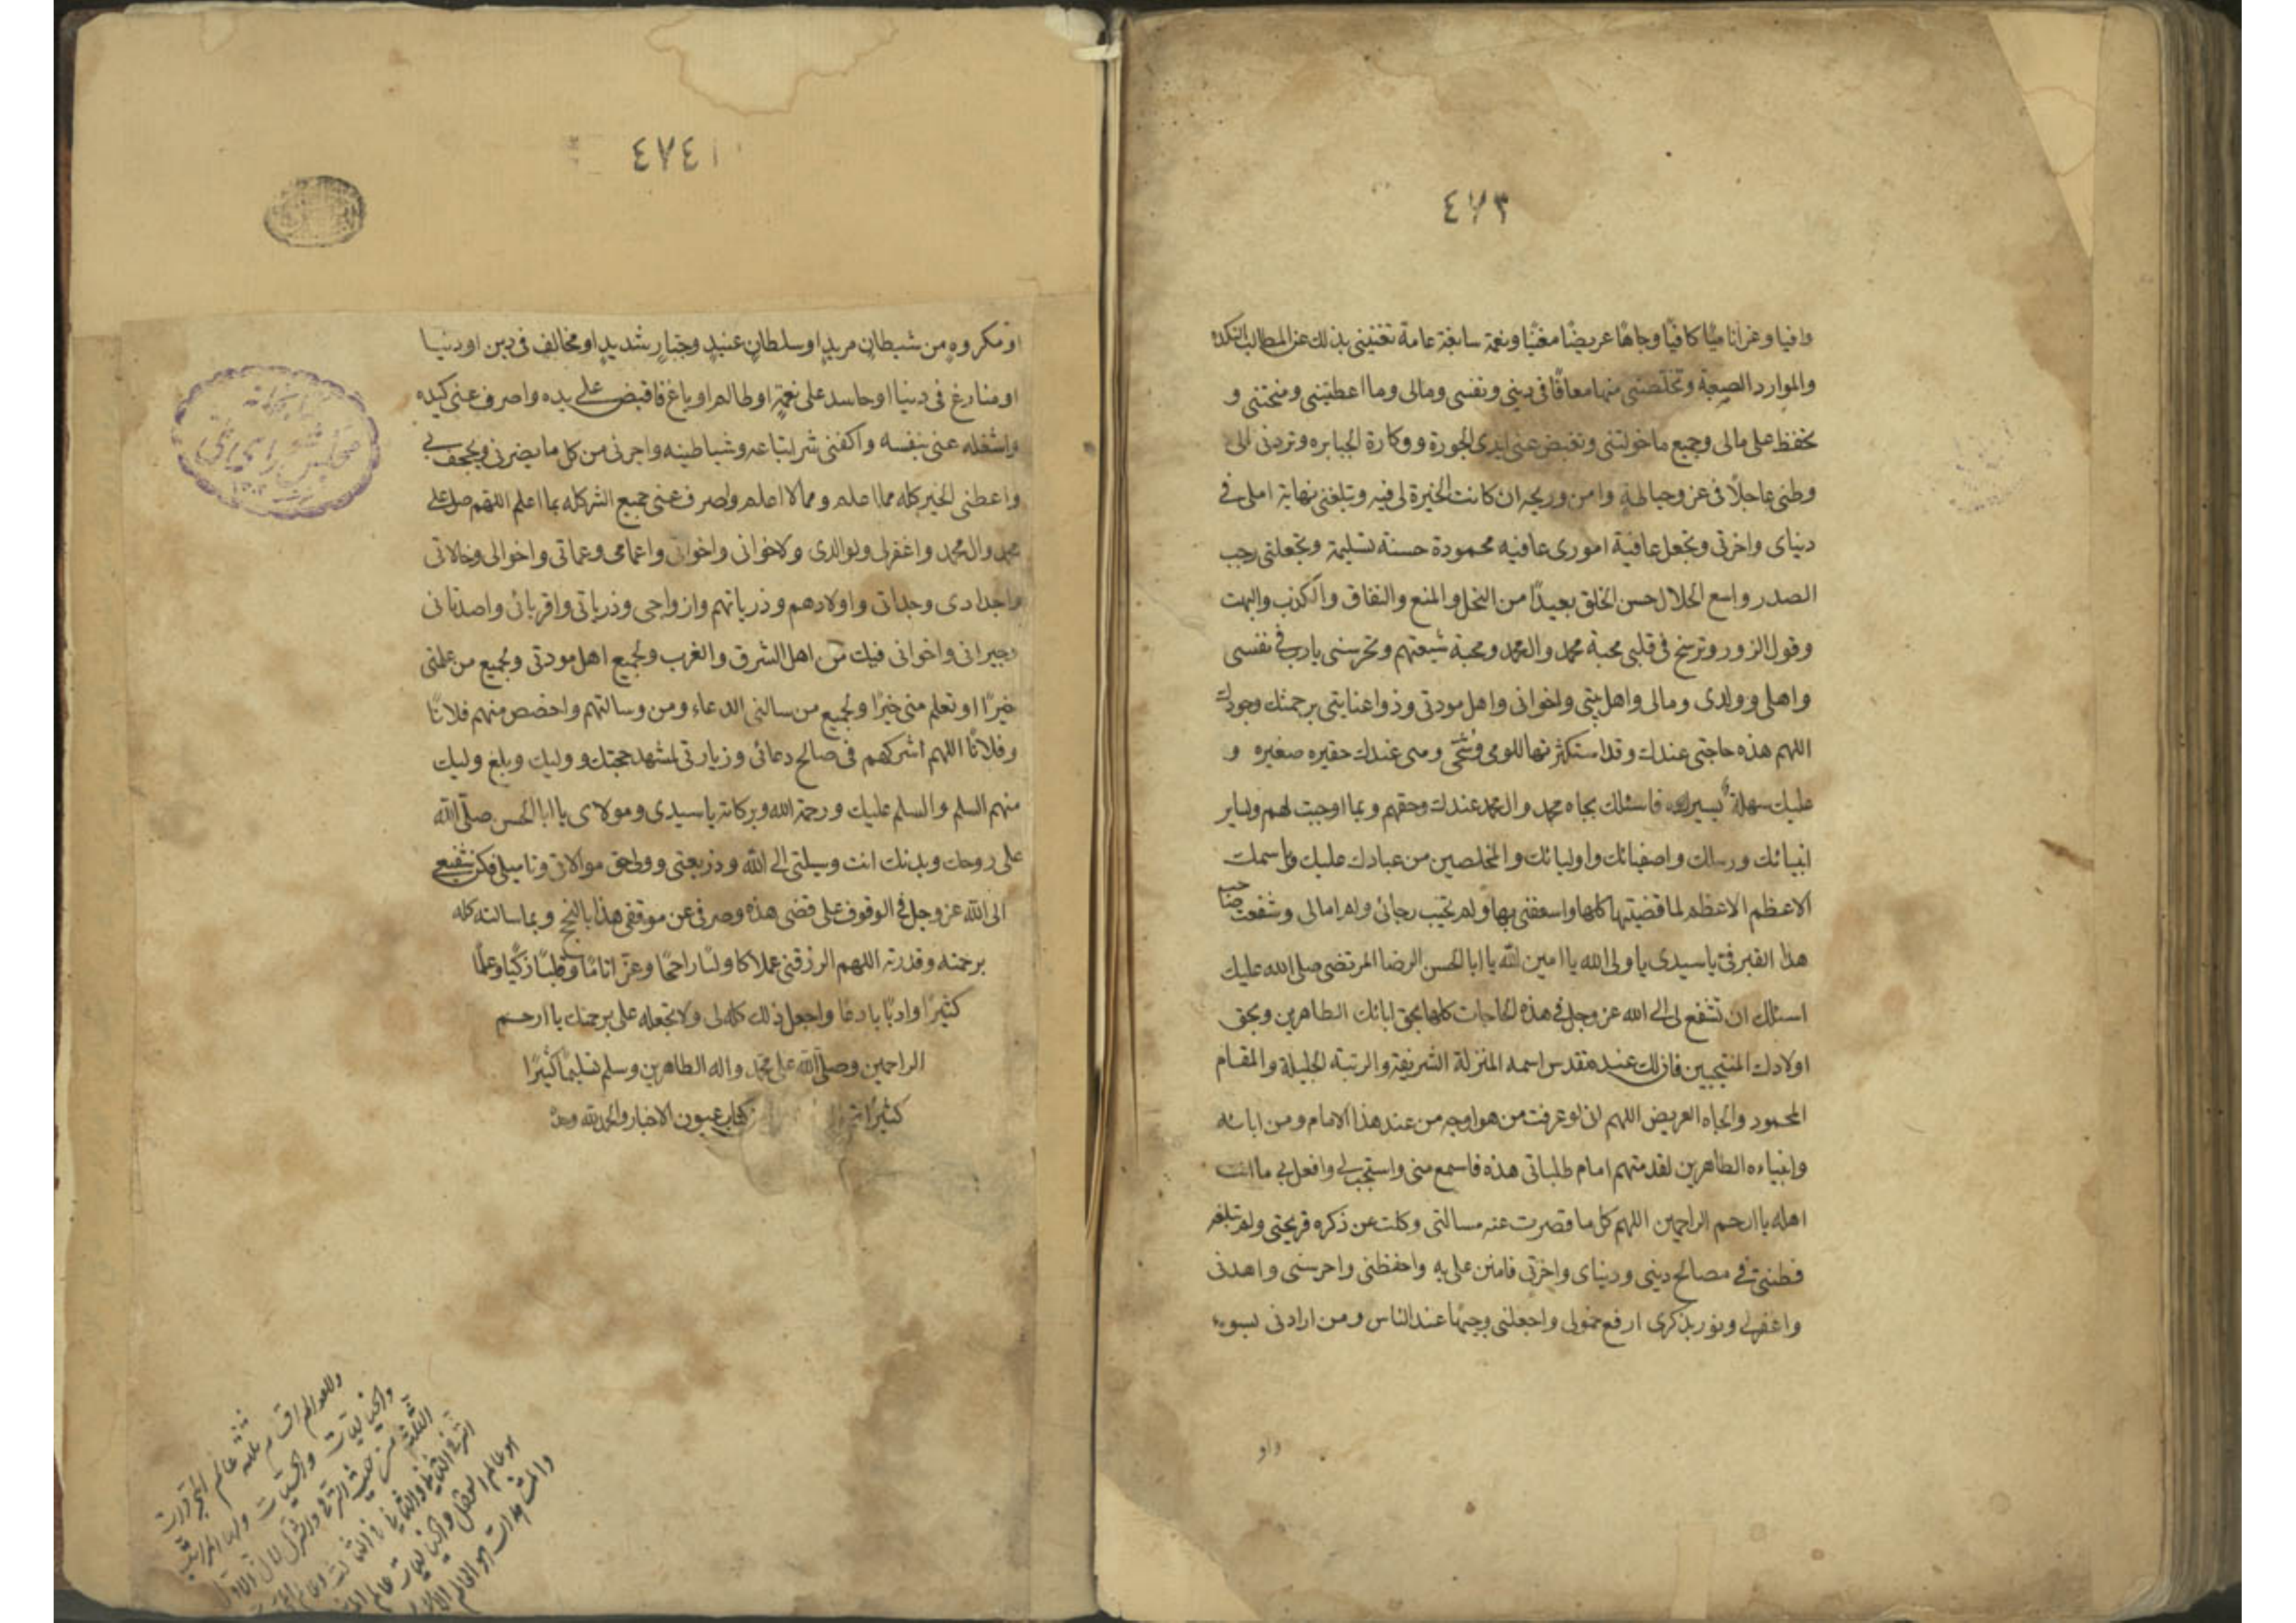 ٤٧٣
وافيا وعزا ناميًا كافيًا وجاهًا عريضًا مغنيًا ونعمة سابغة عامة تغنيني بذلك عن المطالب النكدة
والموارد الصعبة وتخلصني منها معافًا في ديني ونفسي ومالي وما اعطيتني ومنحتني و
تحفظ علي مالي وجميع ما خولتني وتقبض عني ايدي الجورة ووكارة الجبابره وتردني الى
وطني عاجلًا في عز وحياطة وامن وريحه ان كانت الخيرة لي فيه وتبلغني نهاية املي في
دنياي واخرتي وتجعل عاقبة اموري عاقبه محمودة حسنه سليمة وتجعلني رحب
الصدر واسع الحلال حسن الخلق بعيدًا من البخل والمنع والنفاق والكذب والبهت
وقول الزور وترسخ في قلبي محبة محمد وال محمد ومحبة شيعتهم وتحرسني يا رب في نفسي
واهلي وولدي ومالي واهل بيتي واخواني واهل مودتي وذوا عنايتي برحمتك وجودك
اللهم هذه حاجتي عندك وقد استكثرتها للومي وشحي وهي عندك حقيره صغيره و
عليك سهلة يسيره فاسئلك بجاه محمد وال محمد عندك وحقهم وبما اوجبت لهم ولساير
انبيائك ورسلك واصفيائك واوليائك والمخلصين من عبادك عليك وباسمك
الاعظم الاعظم لما قضيتها كلها واسعفتني بها ولم تخيب رجائي وامالي وشفعت صاحب
هذا القبر في يا سيدي يا ولي الله يا امين الله يا ابا الحسن الرضا المرتضى صلى الله عليك
اسئلك ان تشفع لي الى الله عز وجل في هذه الحاجات كلها بحق ابائك الطاهرين وبحق
اولادك المنتجبين فان لك عند متقدس اسمه المنزلة الشريفة والرتبة الجليلة والمقام
المحمود والجاه العريض اللهم اني لو عرفت من هو اوجه من عند هذا الامام ومن ابائه
وابنياءه الطاهرين لقدمتهم امام طلباتي هذه فاسمع مني واستجب لي وافعل بي ما انت
اهله يا ارحم الراحمين اللهم كل ما قصرت عنه مسالتي وكلت عن ذكره قريحتي ولم تبلغه
فطنتي في مصالح ديني ودنياي واخرتي فامنن علي به واحفظني واحرسني واهدني
واغفر لي ونور بذكري ارفع خمولي واجعلني وجيهًا عند الناس ومن ارادني بسوء
داو
٤٧٤
او مكروه من شيطان مريد او سلطان عنيد وجبار شديد او مخالف في دين او دنيا
او منازع في دنيا او حاسد على نعمة او ظالم او باغ فاقبض علي يده واصرف عني كيده
واشغله عني بنفسه واكفني شر اتباعه وشياطينه واجرني من كل ما يضرني ويجحف بي
واعطني الخير كله مما اعلم ومما لا اعلم واصرف عني جميع الشر كله بما اعلم اللهم صل على
محمد وال محمد واغفر لي ولوالدي ولاخواني واخواتي واعمامي وعماتي واخوالي وخالاتي
واجدادي وجداتي واولادهم وذرياتهم وازواجي وذرياتي واقربائي واصدقائي
وجيراني واخواني فيك من اهل الشرق والغرب ولجميع اهل مودتي ولجميع من علمني
خيرًا او تعلم مني خيرًا ولجميع من سالني الدعاء ومن وسالتهم واخصص منهم فلانًا
وفلانًا اللهم اشركهم في صالح دعائي وزيارتي لمشهد حجتك ووليك وبلغ وليك
منهم السلم والسلم عليك ورحمة الله وبركاته يا سيدي ومولاي يا ابا الحسن صلى الله
على روحك وبدنك انت وسيلتي الى الله وذريعتي وولي حق موالاتي وتاميلي فكن شفيعي
الى الله عز وجل في الوقوف على قضى هذه وصرفي عن موقفي هذا بالنجح وبما سالته كله
برحمته وقدرته اللهم ارزقني عملا كاولبًا راجحًا وعزا تامًا وقلبًا زكيًا وعلمًا
كثيرًا وادبًا بارعًا واجعل ذلك كله لي ولا تجعله علي برحمتك يا ارحم
الراحمين وصلى الله على محمد واله الطاهرين وسلم تسليمًا كثيرًا
كثيرًا كتاب عيون الاخبار والحمد لله وحده
كتابخانه
مجلس شوراى ملى